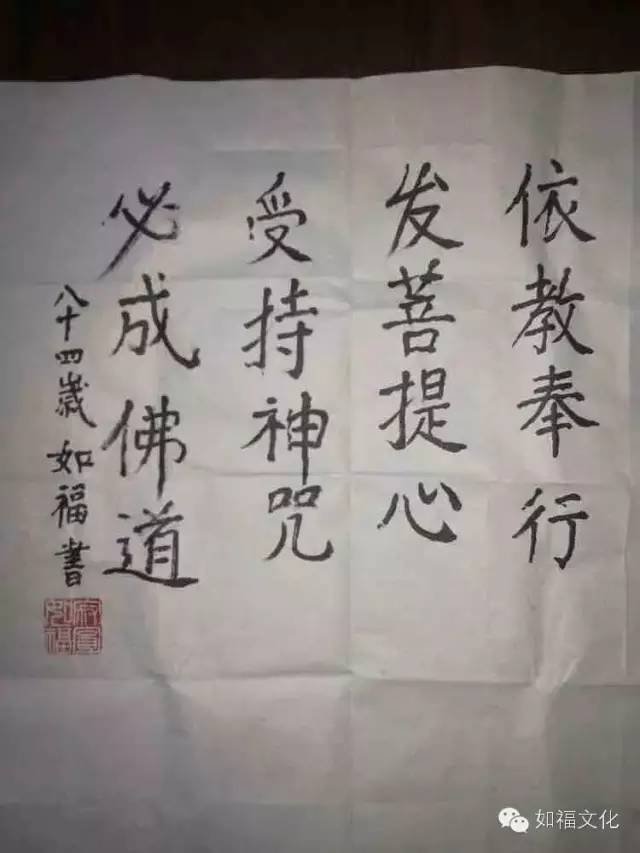 依教奉行
发菩提心
受持神咒
必成佛道
八十四歲 如福書
寂圓如福
如福文化